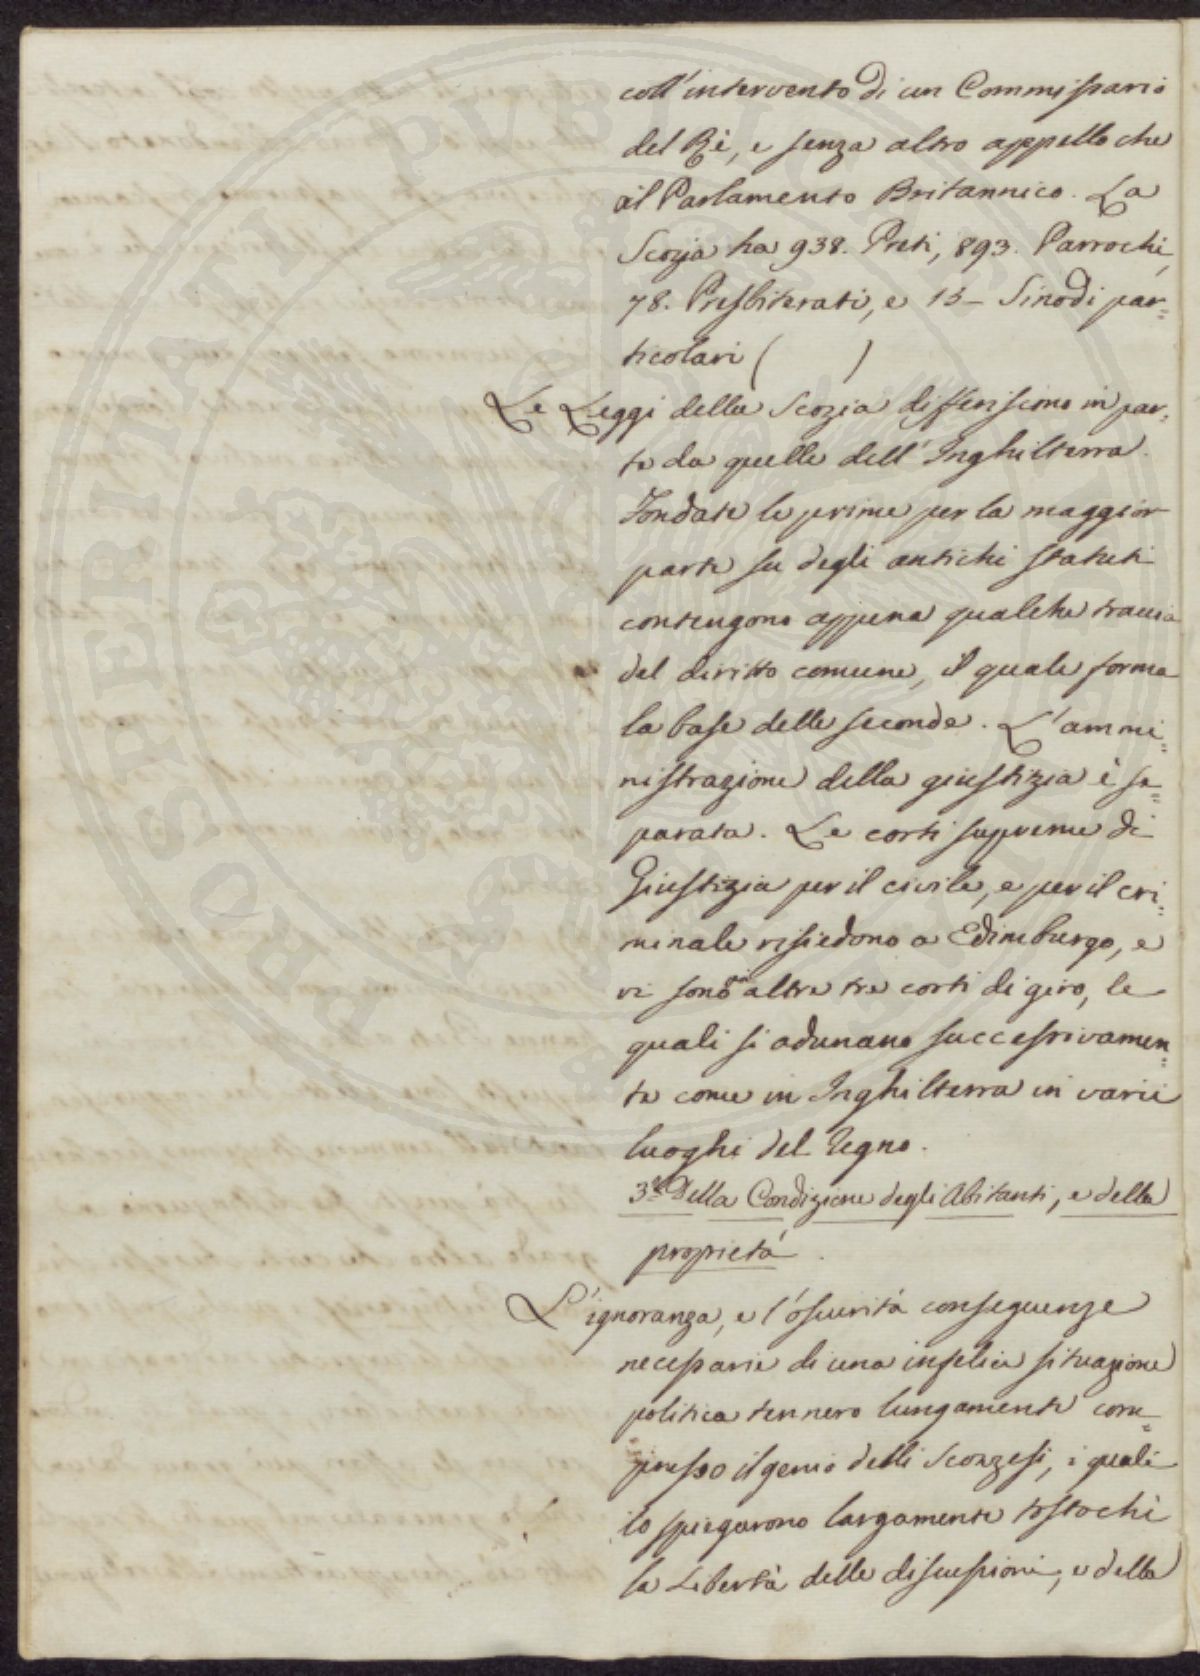 coll'intervento di un Commissario
del Rè, e senza altro appello che
al Parlamento Britannico. La
Scozia ha 938. Preti, 893. Parrochi,
78. Presbiterati, e 15- Sinodi par=
ticolari (          )
Le Leggi della Scozia differiscono in par=
te da quelle dell'Inghilterra.
Fondate le prime per la maggior
parte su degli antichi statuti
contengono appena qualche traccia
del diritto comune, il quale forma
la base delle seconde. L'ammi=
nistrazione della giustizia è se=
parata. Le corti supreme di
Giustizia per il civile, e per il cri=
minale risiedono a Edimburgo, e
vi sono altre tre corti di giro, le
quali si adunano successivamen=
te come in Inghilterra in varii
luoghi del regno.
3.° Della Condizione degli Abitanti, e della
proprietà.
L'ignoranza, e l'oscurità conseguenze
necessarie di una infelice situazione
politica tennero lungamente com=
presso il genio delli Scozzesi, i quali
lo spiegarono largamente tostochè
la Libertà delle discussioni, e della
PROSPERITATI PVBLICAE